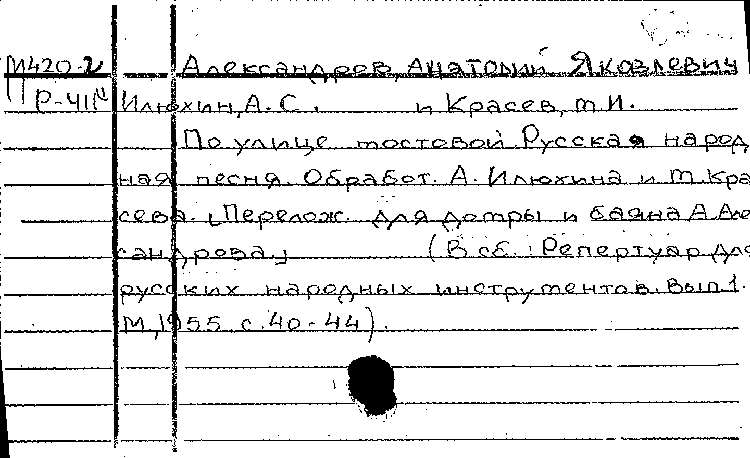 М420-2 Александрев, Анатолий Яковлевич
П Р-41 Илюхин, А. С. и Красев, М. И.
По улице мостовой. Русская народ
ная песня. Обработ. А. Илюхина и М. Кра
сева. [Перелож. для домры и баяна А. Але
сандрова.] (В сб.: Репертуар для
русских народных инструментов. Вып 1.
М, 1955 с. 40-44).